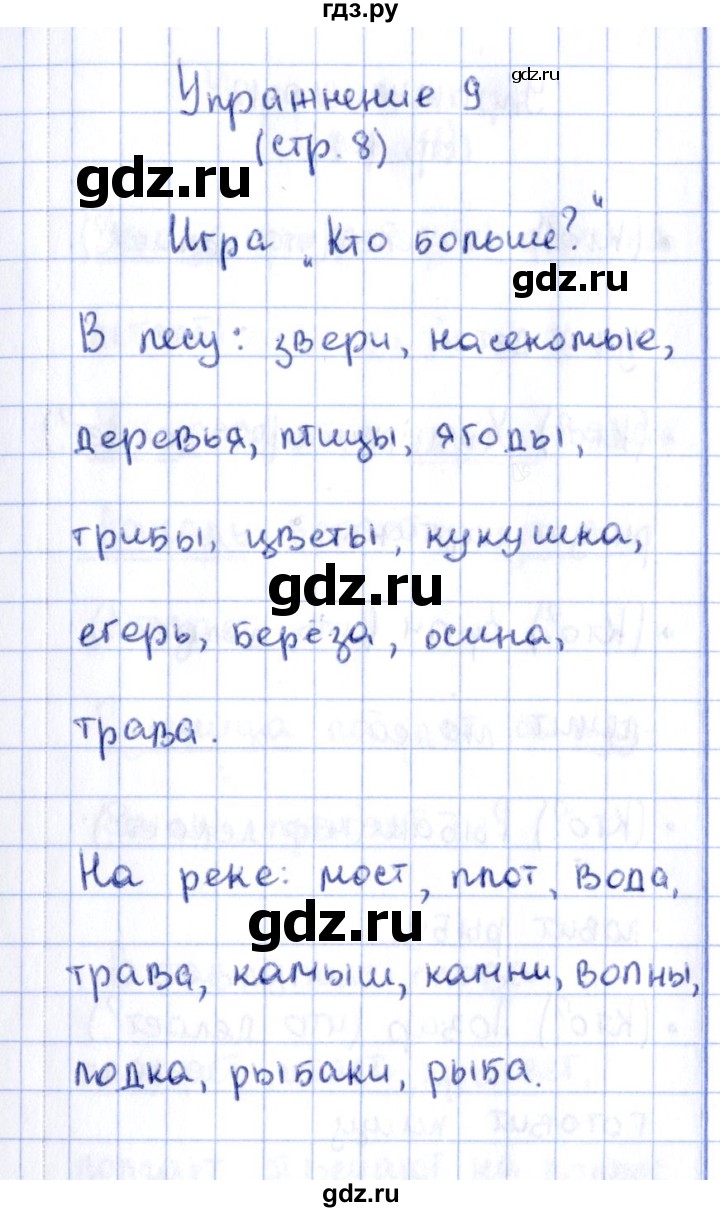 гдз.ру
gdz.ru
Упражнение 9
(стр. 8)
gdz.ru
Игра „Кто больше?"
gdz.ru
В лесу: звери, насекомые,
деревья, птицы, ягоды,
грибы, цветы, кукушка,
gdz.ru
егерь, берёза, осина,
трава.
На реке: мост, плот, вода,
gdz.ru
трава, камыш, камни, волны,
лодка, рыбаки, рыба.
gdz.ru